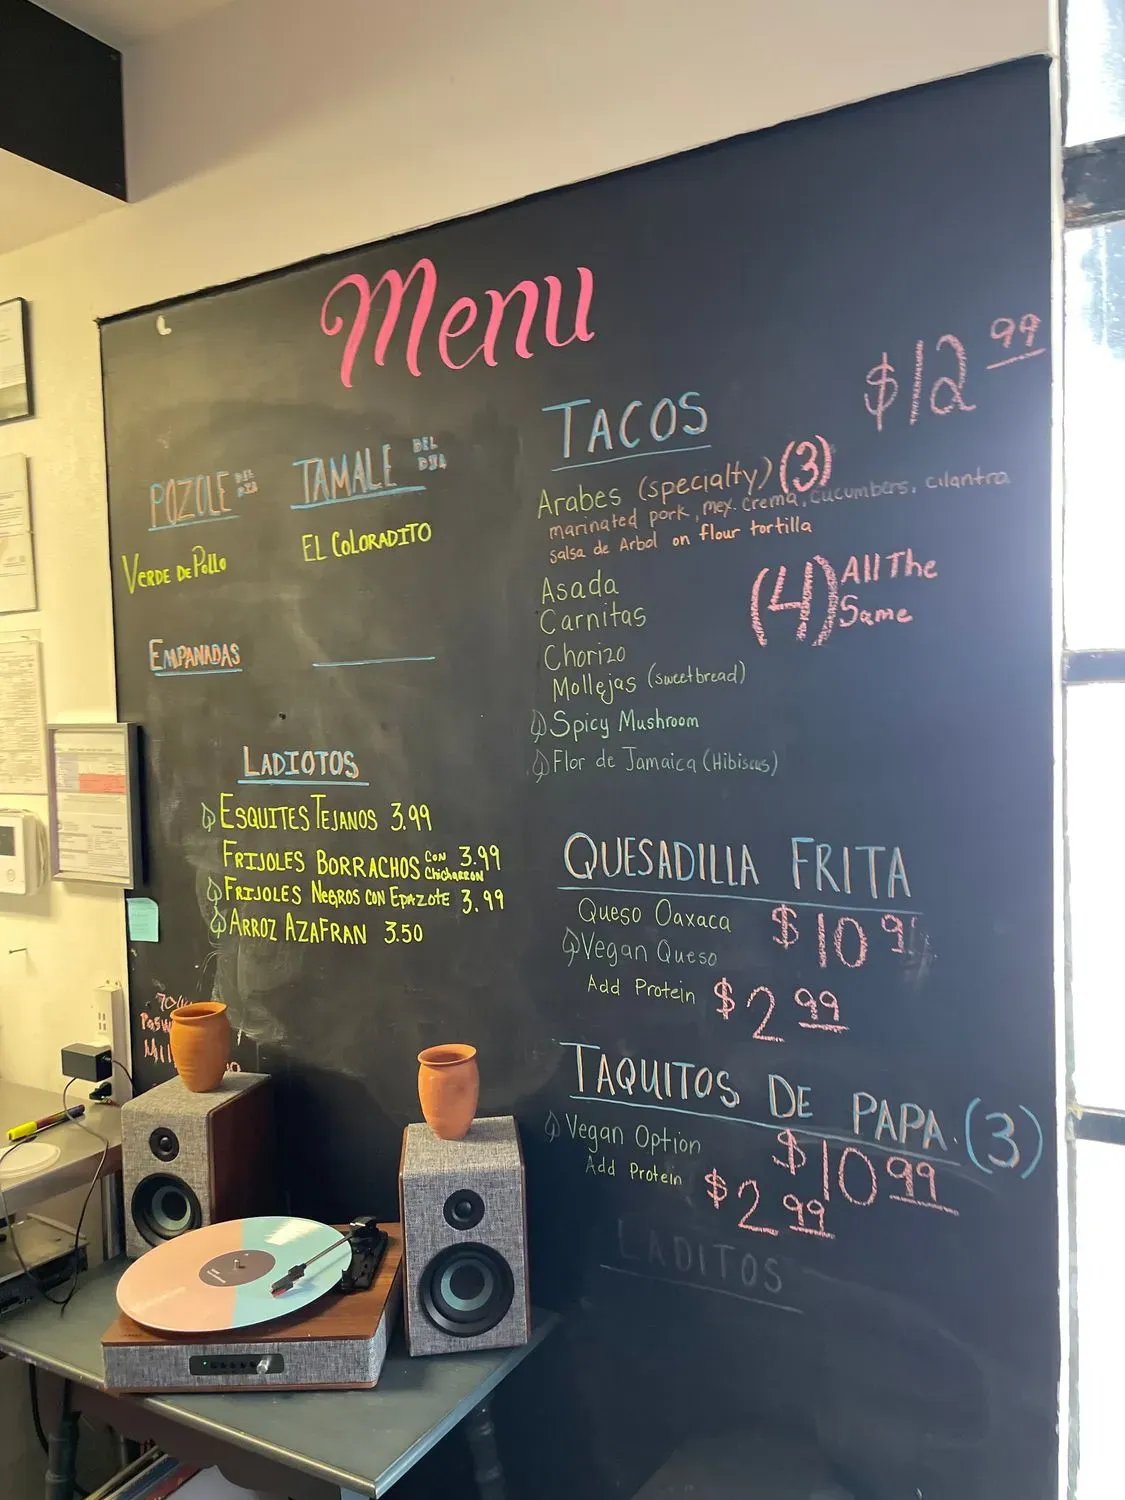 Menu
POZOLE DEL DIA
VERDE DE Pollo
TAMALE DEL DIA
EL COLORADITO
EMPANADAS
LADIOTOS
ESQUITES TEJANOS 3.99
FRIJOLES BORRACHOS CON Chicharron 3.99
FRIJOLES NEGROS CON EPAZOTE 3.99
ARROZ AZAFRAN 3.50
TACOS $12 99
Arabes (specialty) (3)
marinated pork, mex. crema, cucumbers, cilantro
salsa de Arbol on flour tortilla
Asada
Carnitas
Chorizo
Mollejas (sweetbread)
Spicy Mushroom
Flor de Jamaica (Hibiscus)
(4) All The
Same
QUESADILLA FRITA
Queso Oaxaca $10 99
Vegan Queso
Add Protein $2 99
TAQUITOS DE PAPA. (3)
Vegan Option $10 99
Add Protein $2 99
LADITOS